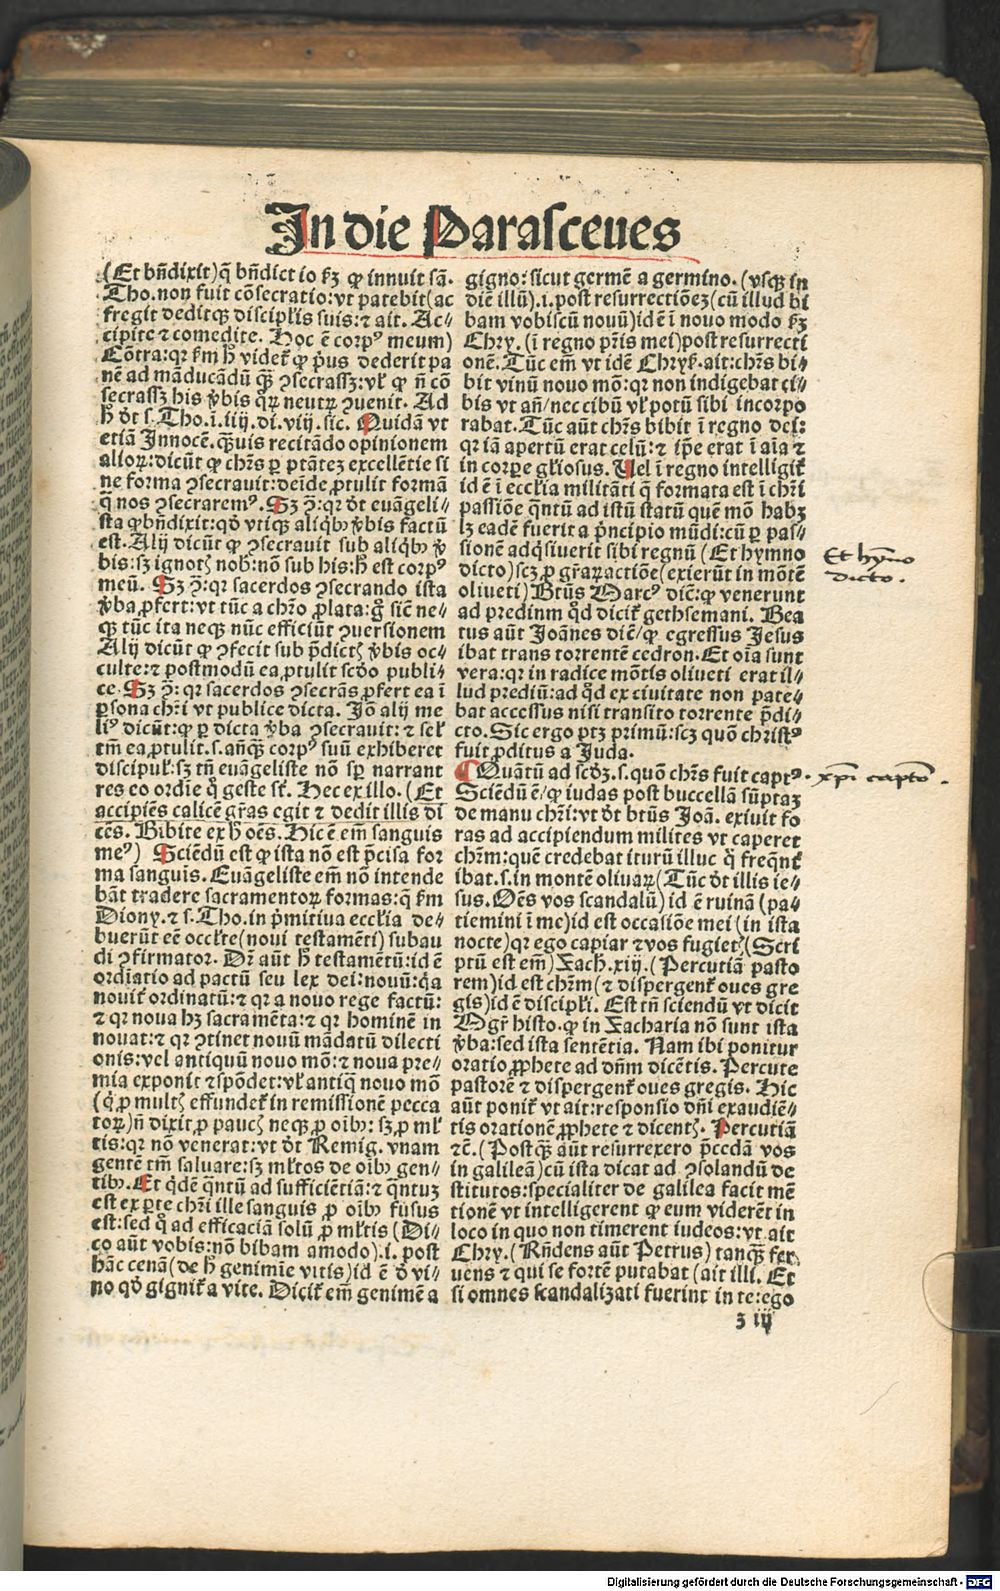 In die Parasceues
(Et bñdixit)q̃ bñdictio ẜꝫ ꝙ innuit sã.
Tho.non fuit cõsecratio:vt patebit(ac
fregit deditqꝫ discipłis suis:⁊ ait. Ac⸗
cipite ⁊ comedite. Hoc ẽ corpꝰ meum)
Cõtra:qꝛ ẜm ħ videt̃ ꝙ p̃us dederit pa
nẽ ad mãducãdũ qꝫ̃ ꝯsecrassꝫ:vł ꝙ ñ cõ
secrassꝫ his v̾bis qꝝ neutꝝ ꝯuenit. Ad
ħ d̾t s.Tho.ĩ.iiij.di.viij.sic. Quidã vt
etiã Innocẽ.qꝫ̃uis recitãdo opinionem
alioꝝ:dicũt ꝙ chr̃s ꝑ ptãteꝫ excellẽtie si
ne forma ꝯsecrauit:deĩde ꝓtulit formã
q̃ nos ꝯsecraremꝰ. Sꝫ ꝯ̃:qꝛ d̾t euãgeli⸗
sta ꝙ bñdixit:qd̾ vtiqꝫ aliqͥbꝰ v̾bis factũ
est. Alij dicũt ꝙ ꝯsecrauit sub aliqͥbꝰ v̾
bis:sꝫ ignotꝭ nob̾:nõ sub his:ħ est corpꝰ
meũ. Sꝫ ꝯ̃:qꝛ sacerdos ꝯsecrando ista
v̾ba ꝓfert:vt tũc a chr̃o ꝓlata:gͦ sic̃ ne⸗
qꝫ tũc ita neqꝫ nũc efficiũt ꝯuersionem
Alij dicũt ꝙ ꝯfecit sub p̃dictꝭ v̾bis oc⸗
culte:⁊ postmodũ ea ꝓtulit scd̾o publi⸗
ce. Sꝫ ꝯ̃: qꝛ sacerdos ꝯsecrãs ꝓfert ea ĩ
ꝑsona chr̃i vt publice dicta. Iõ alij me
liꝰ dicũt:ꝙ ꝑ dicta v̾ba ꝯsecrauit: ⁊ seł
tm̃ ea ꝓtulit.s.añqꝫ̃ corpꝰ suũ exhiberet
discipuł:sꝫ tñ euãgeliste nõ sꝑ narrant
res eo ordĩe qͦ geste st̃. Hec ex illo. (Et
accipiẽs calicẽ gr̃as egit ⁊ dedit illis di
cẽs. Bibite ex ħ oẽs. Hic ẽ em̃ sanguis
meꝰ) Sciẽdũ est ꝙ ista nõ est p̃cisa for
ma sanguĩs. Euãgeliste em̃ nõ intende
bãt tradere sacramentoꝝ formas:q̃ ẜm
Diony.⁊ s.Tho.in p̃mitiua eccłia de⸗
buerũt eẽ occłte(noui testamẽti) subau
di ꝯfirmator. Dr̃ aũt ħ testamẽtũ:id ẽ
ordĩatio ad pactũ seu lex dei:nouũ:qͥa
nouit̃ ordinatũ:⁊ qꝛ a nouo rege factũ:
⁊ qꝛ noua hꝫ sacramẽta:⁊ qꝛ hominẽ in
nouat:⁊ qꝛ ꝯtinet nouũ mãdatũ dilecti
onis:vel antiquũ nouo mõ:⁊ noua pre⸗
mia exponit ⁊ spõdet:vł antiq̃ nouo mõ
(qͥ ꝓ multꝭ effundet̃ in remissionẽ pecca
toꝝ)ñ dixit ꝓ paucꝭ neqꝫ ꝓ oĩbꝰ: sꝫ ꝓ mł
tis:qꝛ nõ venerat:vt d̾t Remig. vnam
gentẽ tm̃ saluare:sꝫ młtos de oĩbꝰ gen⸗
tibꝰ. Et qͥdẽ q̃ntũ ad sufficiẽtiã:⁊ q̃ntuꝫ
est ex ꝑte chr̃i ille sanguis ꝓ oĩbꝰ fusus
est:sed qͦ ad efficaciã solũ ꝓ młtis (Di⸗
co aũt vobis:nõ bibam amodo).i. post
hãc cenã(de ħ genimĩe vitis)id ẽ d̾ vi⸗
no qd̾ gignit̃ a vite. Dicit̃ em̃ genimẽ a
gigno:sicut germẽ a germino.(vsqꝫ in
diẽ illũ).i.post resurrectiõeꝫ(cũ illud bi
bam vobiscũ nouũ)id ẽ ĩ nouo modo ẜꝫ
Chry.(ĩ regno pr̃is mei)post resurrecti
onẽ. Tũc em̃ vt idẽ Chrys̃.ait:chr̃s bi⸗
bit vinũ nouo mõ:qꝛ non indigebat ci⸗
bis vt añ/nec cibũ vł potũ sibi incorpo
rabat. Tũc aũt chr̃s bibit ĩ regno dei:
qꝛ iã apertũ erat celũ:⁊ ip̃e erat ĩ aĩa ⁊
in corꝑe głiosus. Uel ĩ regno intelligit̃
id ẽ ĩ eccłia militãti q̃ formata est ĩ chr̃i
passiõe q̃ntũ ad istũ statũ quẽ mõ habꝫ
lꝫ eadẽ fuerit a p̃ncipio mũdi:cũ ꝑ pas⸗
sionẽ adq̃siuerit sibi regnũ (Et hymno
dicto)scꝫ ꝓ gr̃aꝝactiõe(exierũt in mõtẽ
oliueti) Btũs Marcꝰ dic̃:ꝙ venerunt
ad predium qd̾ dicit̃ gethsemani. Bea
tus aũt Joãnes dic̃/ꝙ egressus Jesus
ibat trans torrentẽ cedron.Et oĩa sunt
vera:qꝛ in radice mõtis oliueti erat il⸗
lud prediũ:ad qd̾ ex ciuitate non pate⸗
bat accessus nisi transito torrente p̃di⸗
cto.Sic ergo ptꝫ primũ:scꝫ quõ christꝰ
fuit ꝓditus a Juda.
Quãtũ ad scd̾ꝫ.s.quõ chr̃s fuit captꝰ.
Sciẽdũ ẽ/ꝙ iudas post buccellã sũptaꝫ
de manu chr̃i:vt d̾t btũs Joã. exiuit fo
ras ad accipiendum milites vt caperet
chr̃m:quẽ credebat iturũ illuc qͦ freq̃nt̃
ibat.s.in montẽ oliuaꝝ(Tũc d̾t illis ie⸗
sus. Oẽs vos scandalũ) id ẽ ruinã (pa⸗
tiemini ĩ me)id est occasiõe mei (in ista
nocte)qꝛ ego capiar ⁊ vos fugietꝭ(Scri
ptũ est em̃) Zach.xiij.(Percutiã pasto
rem)id est chr̃m(⁊ dispergent̃ oues gre
gis)id ẽ discipłi. Est tñ sciendũ vt dicit
Mgr̃ histo.ꝙ in Zacharia nõ sunt ista
v̾ba:sed ista sentẽtia. Nam ibi ponitur
oratio ꝓphete ad dñm dicẽtis. Percute
pastorẽ ⁊ dispergent̃ oues gregis. Hic
aũt ponit̃ vt ait:responsio dñi exaudiẽ⸗
tis orationẽ ꝓphete ⁊ dicentꝭ. Percutiã
⁊c̃.(Postqꝫ̃ aũt resurrexero p̃cedã vos
in galileã)cũ ista dicat ad ꝯsolandũ de
stitutos:specialiter de galilea facit mẽ
tionẽ vt intelligerent ꝙ eum viderẽt in
loco in quo non timerent iudeos:vt ait
Chry.(Rñdens aũt Petrus) tanqꝫ̃ fer
uens ⁊ qui se fortẽ putabat (ait illi. Et
si omnes scandalizati fuerint in te:ego
ȝ iij
Et hỹno
dicto.
xp̃i capto.
Digitalisierung gefördert durch die Deutsche Forschungsgemeinschaft - DFG